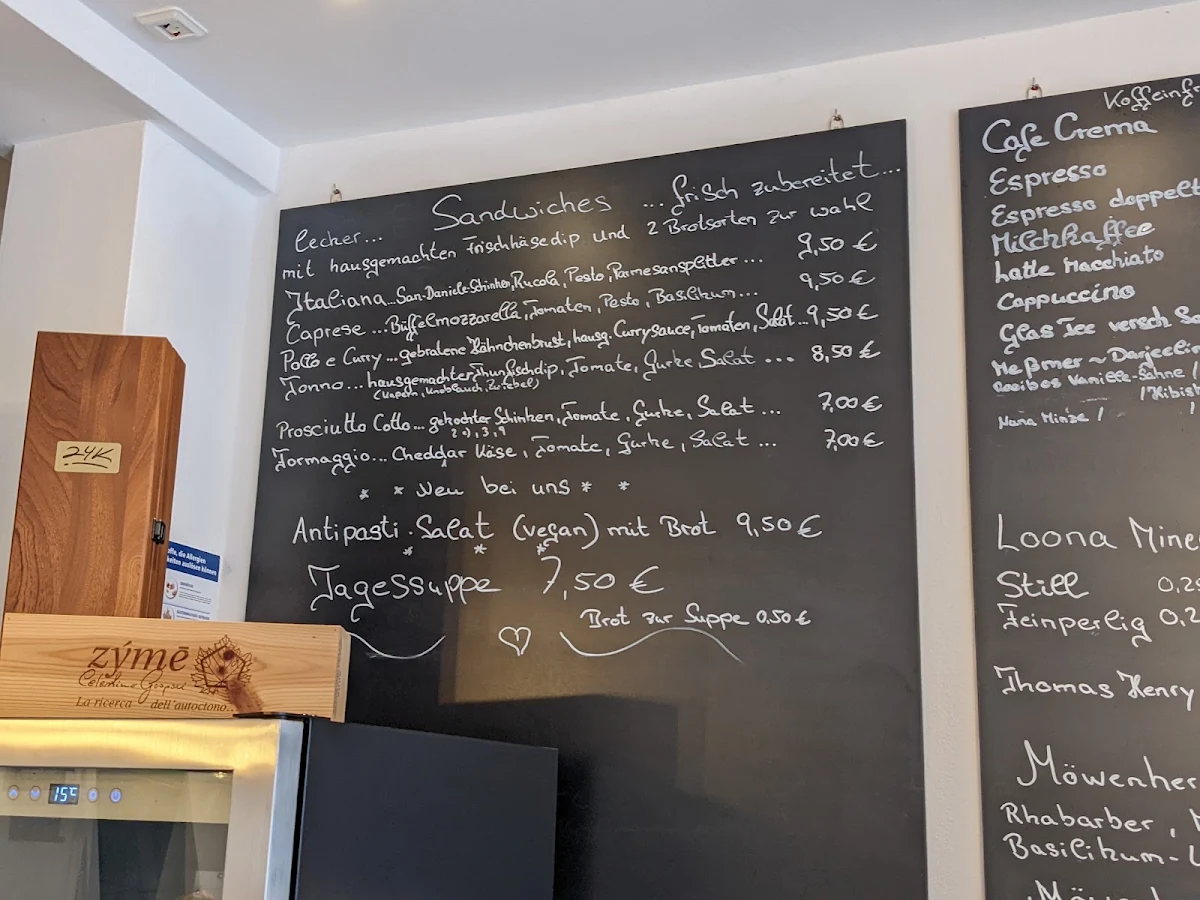 Sandwiches ... frisch zubereitet...
lecker...
mit hausgemachten Frischkäsedip und 2 Brotsorten zur wahl
Italiana...San-Daniele-Schinken,Rucola,Pesto,Parmesansplitter ... 9,50 €
Caprese ...Büffelmozzarella,Tomaten, Pesto, Basilikum... 9,50 €
Pollo e Curry...gebratene Hähnchenbrust, hausg. Currysauce,Tomaten, Salat...9,50 €
Tonno... hausgemachter Thunfischdip, Tomate, Gurke, Salat ... 8,50 €
(Kapern, Knoblauch, Zwiebel)
Prosciutto Cotto... gekochter Schinken, Tomate, Gurke, Salat ... 7,00 €
2),3,9
Formaggio... Cheddar Käse, Tomate, Gurke, Salat ... 7,00 €
* * Neu bei uns * *
Antipasti-Salat (vegan) mit Brot 9,50 €
* * *
Tagessuppe 7,50 €
Brot zur Suppe 0,50 €
Koffeinfr
Cafe Crema
Espresso
Espresso doppelt
Milchkaffee
Latte Macchiato
Cappuccino
Glas Tee versch So
Meßmer ~ Darjeelin
Rooibos Vanille-Sahne /
/Hibis
Nana Minze /
Loona Mine
Still 0,25
Feinperlig 0,2
Thomas Henry
Möwenher
Rhabarber,
Basilikum-
24K
offe, die Allergien
keiten auslösen können
zýmē
Celestino Gaspari
La ricerca dell'autoctono..
15°C